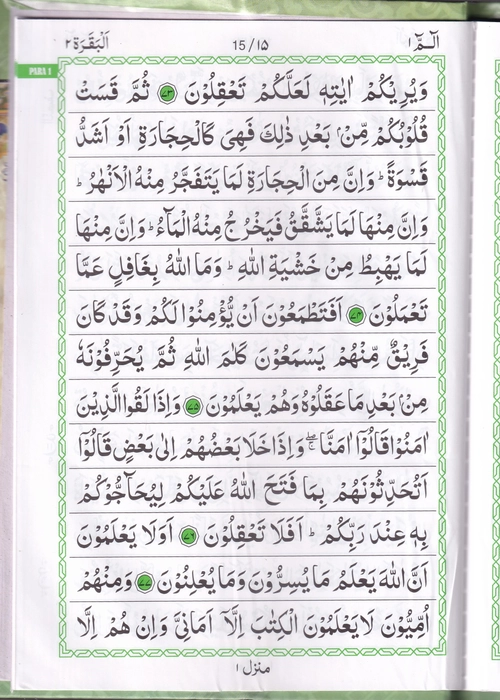 الٓـمّٓ ١ 15/١٥ اَلْبَقَرَة ٢
PARA 1
وَيُرِيْكُمْ اٰيٰتِهٖ لَعَلَّكُمْ تَعْقِلُوْنَ ﴿٧٣﴾ ثُمَّ قَسَتْ
قُلُوْبُكُمْ مِّنْۢ بَعْدِ ذٰلِكَ فَهِيَ كَالْحِجَارَةِ اَوْ اَشَدُّ
قَسْوَةً ؕ وَاِنَّ مِنَ الْحِجَارَةِ لَمَا يَتَفَجَّرُ مِنْهُ الْاَنْهٰرُ ؕ
وَاِنَّ مِنْهَا لَمَا يَشَّقَّقُ فَيَخْرُجُ مِنْهُ الْمَآءُ ؕ وَاِنَّ مِنْهَا
لَمَا يَهْبِطُ مِنْ خَشْيَةِ اللّٰهِ ؕ وَمَا اللّٰهُ بِغَافِلٍ عَمَّا
تَعْمَلُوْنَ ﴿٧٤﴾ اَفَتَطْمَعُوْنَ اَنْ يُّؤْمِنُوْا لَكُمْ وَقَدْ كَانَ
فَرِيْقٌ مِّنْهُمْ يَسْمَعُوْنَ كَلٰمَ اللّٰهِ ثُمَّ يُحَرِّفُوْنَهٗ
مِنْۢ بَعْدِ مَا عَقَلُوْهُ وَهُمْ يَعْلَمُوْنَ ﴿٧٥﴾ وَاِذَا لَقُوا الَّذِيْنَ
اٰمَنُوْا قَالُوْٓا اٰمَنَّا ۖۚ وَاِذَا خَلَا بَعْضُهُمْ اِلٰى بَعْضٍ قَالُوْٓا
اَتُحَدِّثُوْنَهُمْ بِمَا فَتَحَ اللّٰهُ عَلَيْكُمْ لِيُحَآجُّوْكُمْ
بِهٖ عِنْدَ رَبِّكُمْ ؕ اَفَلَا تَعْقِلُوْنَ ﴿٧٦﴾ اَوَلَا يَعْلَمُوْنَ
اَنَّ اللّٰهَ يَعْلَمُ مَا يُسِرُّوْنَ وَمَا يُعْلِنُوْنَ ﴿٧٧﴾ وَمِنْهُمْ
اُمِّيُّوْنَ لَا يَعْلَمُوْنَ الْكِتٰبَ اِلَّآ اَمَانِيَّ وَاِنْ هُمْ اِلَّا
منزل ١